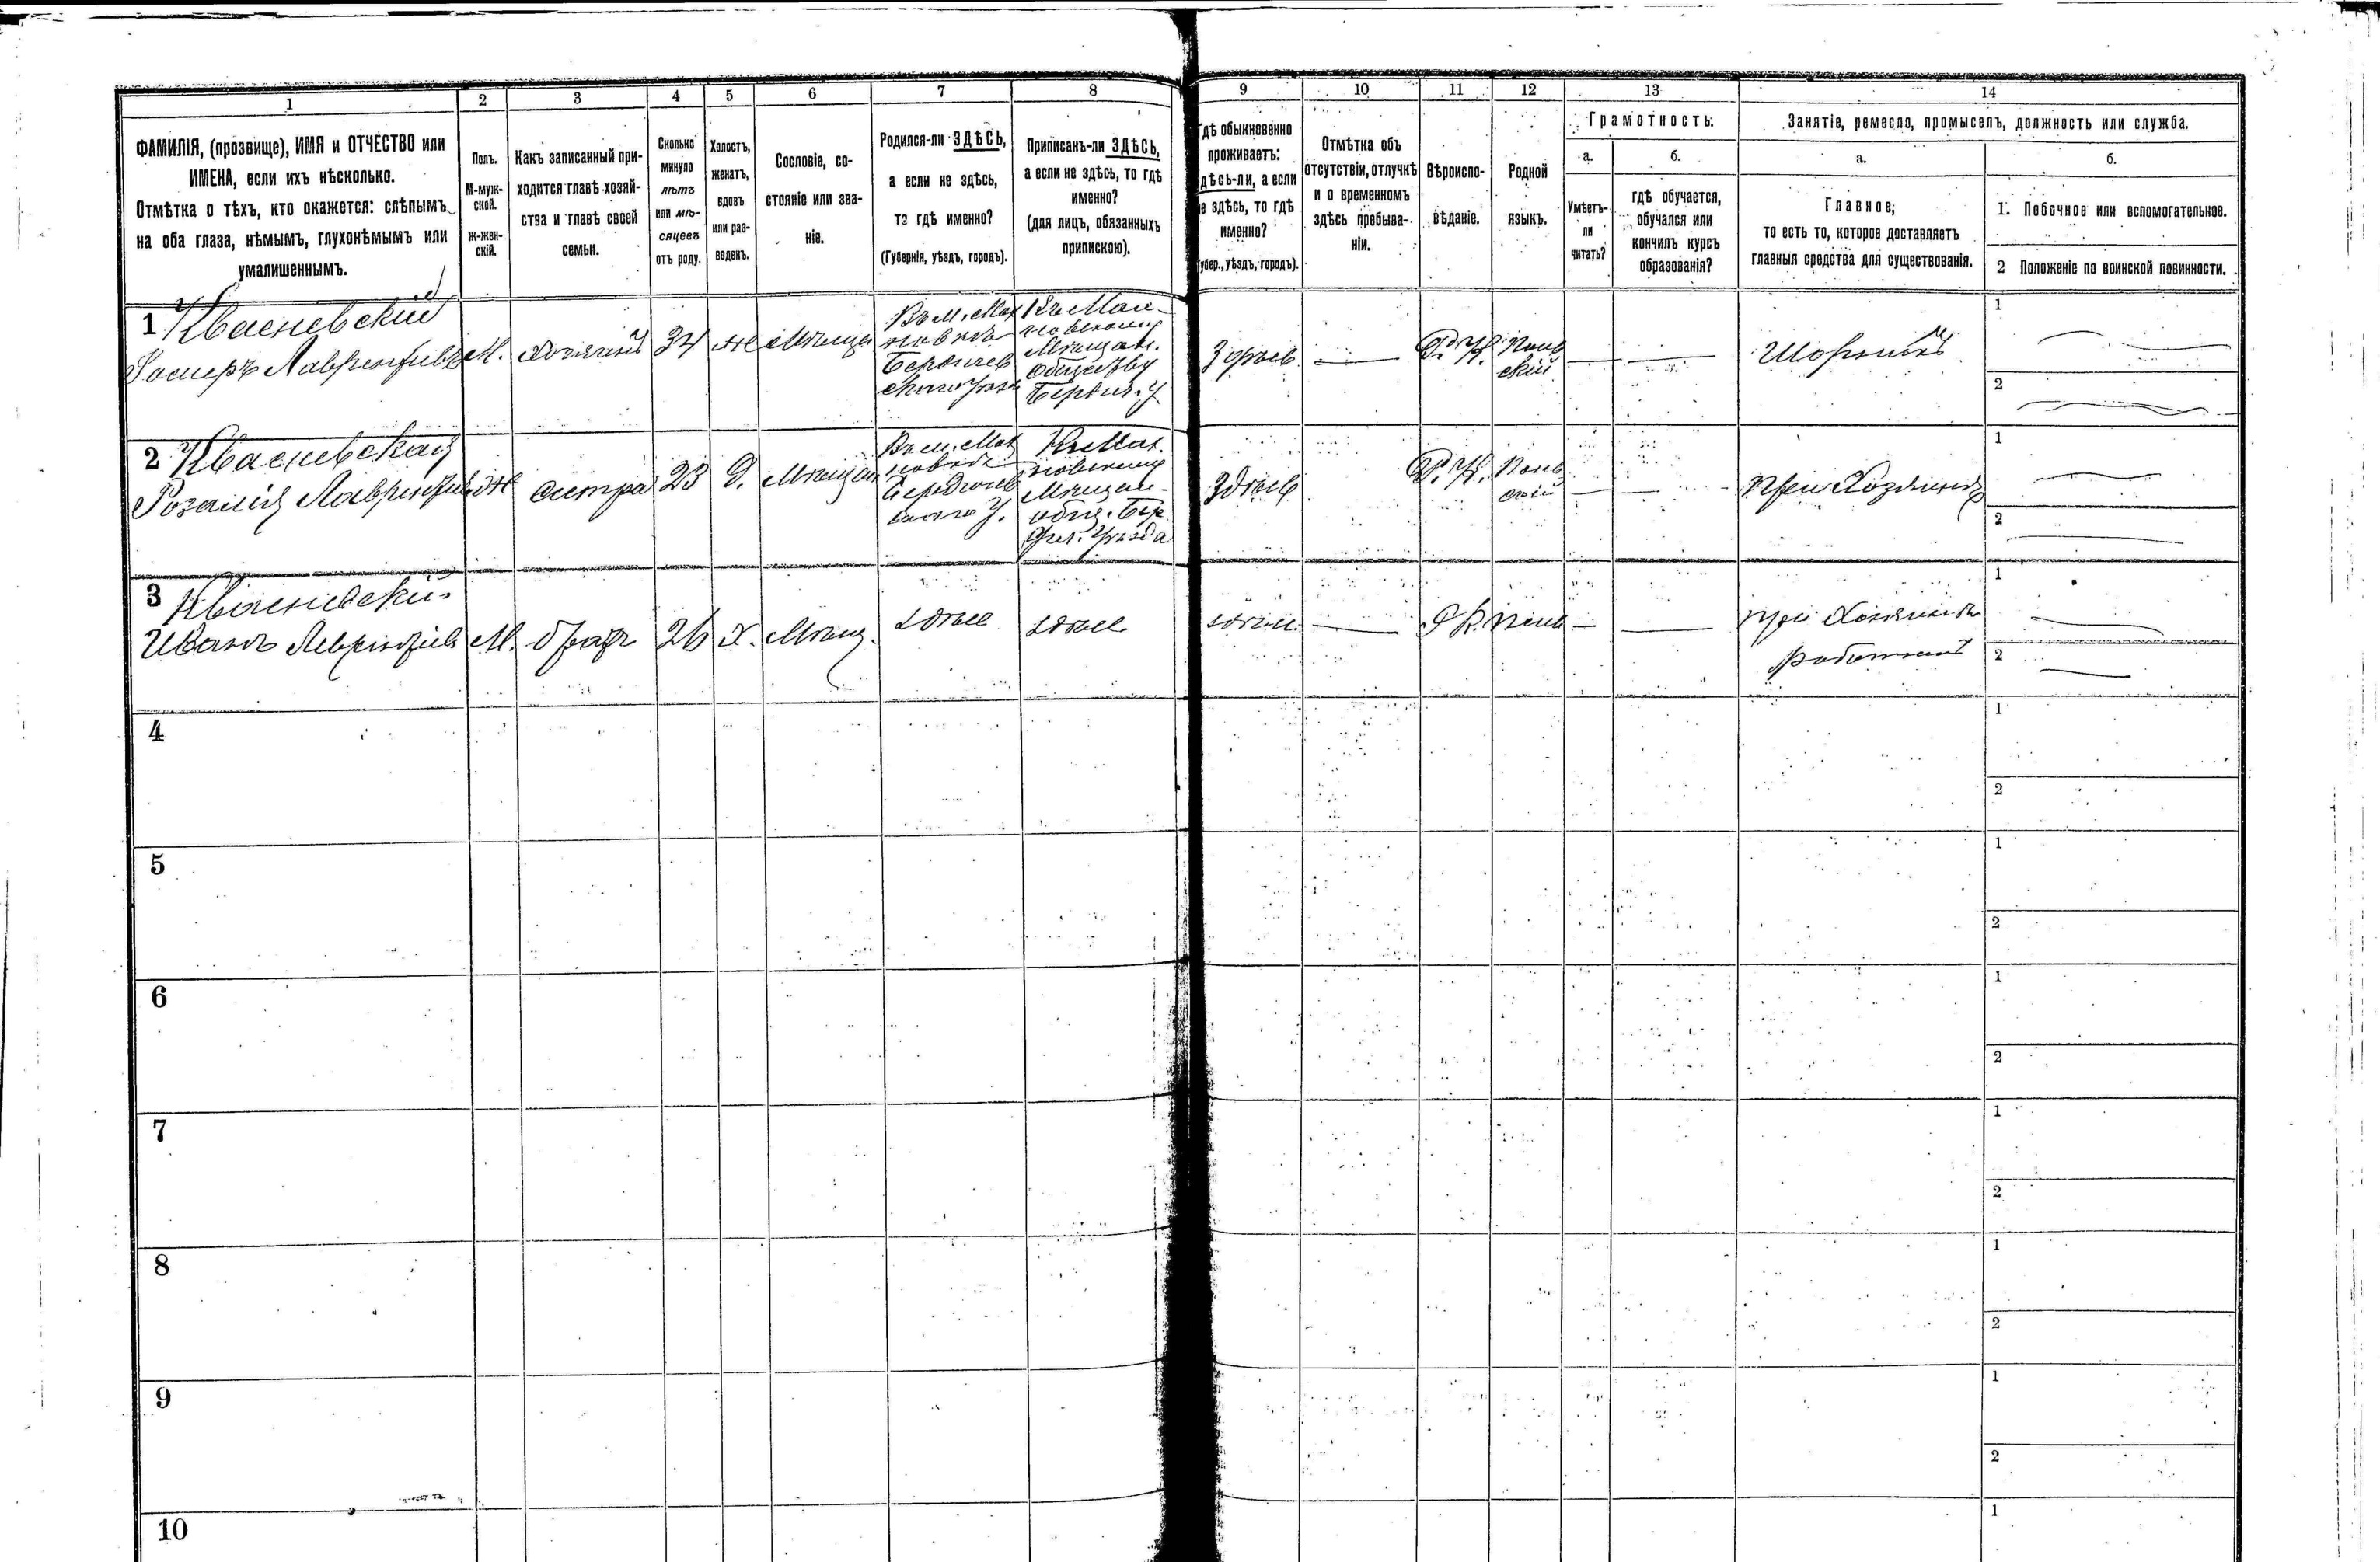 1 2 3 4 5 6 7 8 9 10 11 12 13 14
ФАМИЛІЯ, (прозвище), ИМЯ и ОТЧЕСТВО или
ИМЕНА, если ихъ нѣсколько.
Отмѣтка о тѣхъ, кто окажется: слѣпымъ
на оба глаза, нѣмымъ, глухонѣмымъ или
умалишеннымъ.
Полъ.
М-муж-
ской.
Ж-жен-
скій.
Какъ записанный при-
ходится главѣ хозяй-
ства и главѣ своей
семьи.
Сколько
минуло
лѣтъ
или мѣ-
сяцевъ
отъ роду.
Холостъ,
женатъ,
вдовъ
или раз-
веденъ.
Сословіе, со-
стояніе или зва-
ніе.
Родился-ли ЗДѢСЬ,
а если не здѣсь,
то гдѣ именно?
(Губернія, уѣздъ, городъ).
Приписанъ-ли ЗДѢСЬ,
а если не здѣсь, то гдѣ
именно?
(для лицъ, обязанныхъ
припискою).
гдѣ обыкновенно
проживаетъ:
здѣсь-ли, а если
не здѣсь, то гдѣ
именно?
(Губер., уѣздъ, городъ).
Отмѣтка объ
отсутствіи, отлучкѣ
и о временномъ
здѣсь пребыва-
ніи.
Вѣроиспо-
вѣданіе.
Родной
языкъ.
Грамотность.
а.
Умѣетъ-
ли
читать?
б.
гдѣ обучается,
обучался или
кончилъ курсъ
образованія?
Занятіе, ремесло, промыселъ, должность или служба.
а.
Главное,
то есть то, которое доставляетъ
главныя средства для существованія.
б.
1. Побочное или вспомогательное.
2 Положеніе по воинской повинности.
1 Квасневский
Лаврентьев М. хозяинъ 34 ж Мѣщан
Бердичев
Обществу
Бердич. у
здѣсь Р. К. Поль
ский
1
2
2 Квасневская
Розалія Лаврентьев Ж сестра 23 Д. Мѣщан
Мѣщан-
общ. Бер
дич. Уѣзда
здѣсь Р. К. Поль
скій
при Хозяине
1
2
3 Квасневский
Иванъ Лаврентьев М. братъ 26 Х. Мѣщ. здѣсь здѣсь здѣсь Р К. Поль
при Хозяине
работник
1
2
4
1
2
5
1
2
6
1
2
7
1
2
8
1
2
9
1
2
10
1